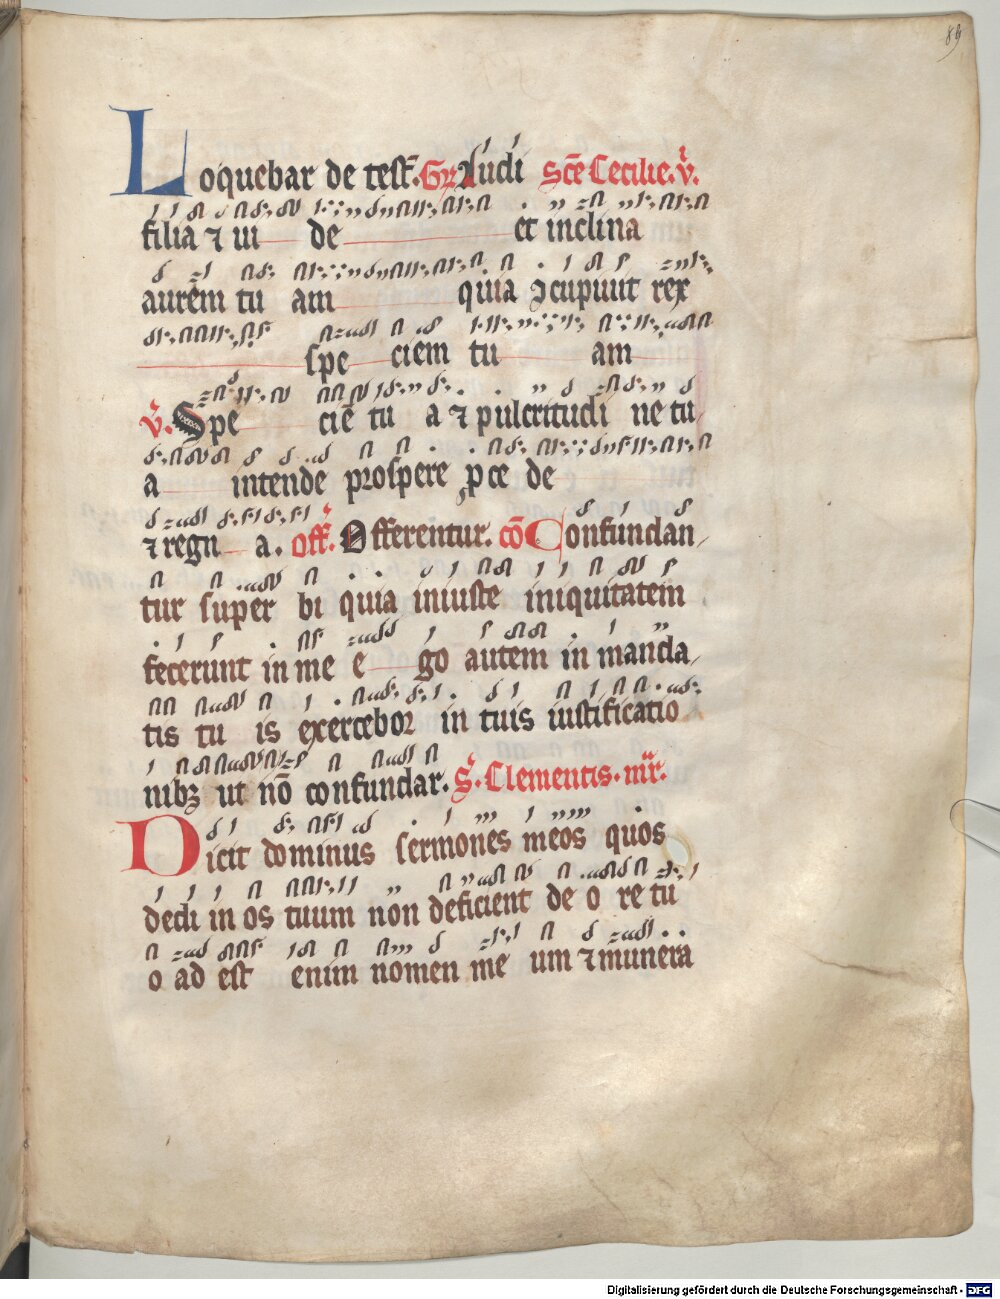 89
Loquebar de test. Gr. Audi Scē Cecilie. v.
filia ⁊ ui de et inclina
aurem tu am quia ꝯcupiuit rex
spe ciem tu am
v. Spe ciē tu a ⁊ pulcritudi ne tu
a intende prospere ꝓce de
⁊ regn a. off. Offerentur. cō Confundan
tur super bi quia iniuste iniquitatem
fecerunt in me e go autem in manda
tis tu is exercebor in tuis iustificatio
nibꝫ ut nō confundar. S. Clementis. mr.
Dicit dominus sermones meos quos
dedi in os tuum non deficient de o re tu
o ad est enim nomen me um ⁊ munera
Digitalisierung gefördert durch die Deutsche Forschungsgemeinschaft - DFG